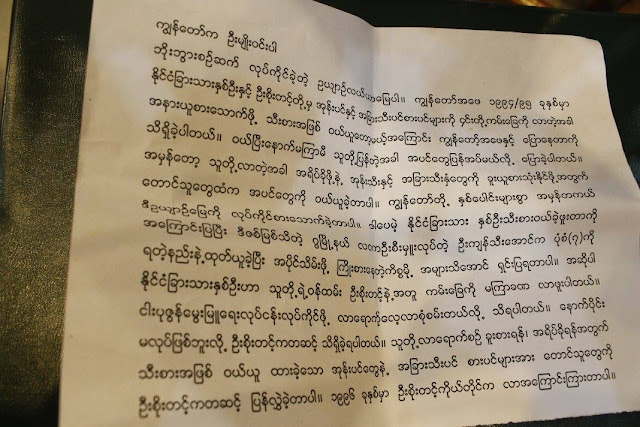 ကျွန်တော်က ဦးမျိုးဝင်းပါ
ဘိုးဘွားစဉ်ဆက် လုပ်ကိုင်ခဲ့တဲ့ ဥယျာဉ်လယ်ယာမြေပါ။ ကျွန်တော်အဖေ ၁၉၉၄/၉၅ ခုနှစ်မှာ
နိုင်ငံခြားသားနှစ်ဦးနှင့် ဦးစိုးတင့်တို့မှ အုန်းပင်နှင့် အခြားသီးပင်စားပင်များကို ၄င်းတို့ကမ်းခြေကို လာတဲ့အခါ
အနားယူစားသောက်ဖို့ သီးစားအဖြစ် ဝယ်ယူတော့မယ့်အကြောင်း ကျွန်တော့်အဖေနှင့် ပြောနေတာကို
သိရှိခဲ့ပါတယ်။ ဝယ်ပြီးနောက်မကြာမီ သူတို့ပြန်တဲ့အခါ အပင်တွေပြန်အပ်မယ်လို့ ပြောခဲ့ပါတယ်။
အမှန်တော့ သူတို့လာတဲ့အခါ အရိပ်ခိုဖို့နဲ့ အုန်းသီးနှင့် အခြားသီးနှံတွေကို ခူးယူစားသုံးနိုင်ဖို့အတွက်
တောင်သူတွေထံက အပင်တွေကို ဝယ်ယူခဲ့တာပါ။ ကျွန်တော်တို့ နှစ်ပေါင်းများစွာ အမှန်တကယ်
ဒီဥယျာဉ်မြေကို လုပ်ကိုင်စားသောက်ခဲ့တာပါ။ ဒါပေမဲ့ နိုင်ငံခြားသား နှစ်ဦးသီးစားဝယ်ခဲ့ဖူးတာကို
အကြောင်းပြုပြီး ဒီဇစ်မြစ်သိတဲ့ ရွှေမြို့နယ် လ၊က၊ဦးစီးမှူးလုပ်တဲ့ ဦးကျန်သီးအောင်က ပုံစံ(၇)ကို
ရတဲ့နည်းနဲ့ ထုတ်ယူခဲ့ပြီး အပိုင်သိမ်းဖို့ ကြိုးစားနေတဲ့ကိစ္စမို့ အများသိအောင် ရှင်းပြရတာပါ။ အဆိုပါ
နိုင်ငံခြားသားနှစ်ဦးဟာ သူတို့ရဲ့ဝန်ထမ်း ဦးစိုးတင့်နဲ့အတူ ကမ်းခြေကို မကြာခဏ လာဖူးပါတယ်။
ငါးပုစွန်မွေးမြူရေးလုပ်ငန်းလုပ်ကိုင်ဖို့ လာရောက်လေ့လာစုံစမ်းတယ်လို့ သိရပါတယ်။ နောက်ပိုင်း
မလုပ်ဖြစ်ဘူးလို့ ဦးစိုးတင့်ကတဆင့် သိရှိခဲ့ရပါတယ်။ သူတို့လာရောက်စဉ် ခူးစားရန်၊ အရိပ်ခိုရန်အတွက်
သီးစားအဖြစ် ဝယ်ယူ ထားခဲ့သော အုန်းပင်တွေနဲ့ အခြားသီးပင် စားပင်များအား တောင်သူတွေကို
ဦးစိုးတင့်ကတဆင့် ပြန်လွှဲခဲ့တာပါ။ ၁၉၉၆ ခုနှစ်မှာ ဦးစိုးတင့်ကိုယ်တိုင်က လာအကြောင်းကြားတာပါ။